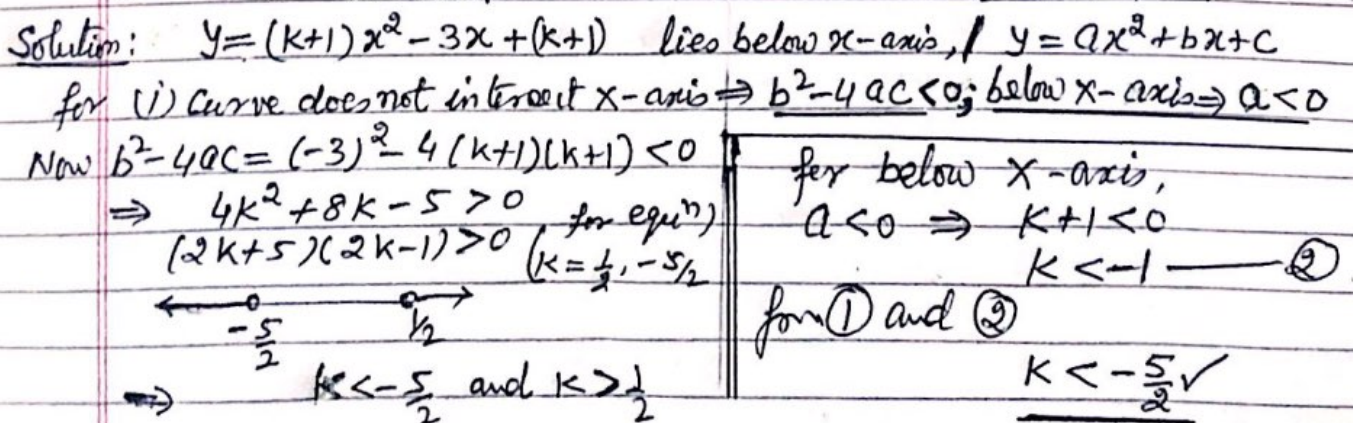 Solution: y = (k+1) x² - 3x + (k+1) lies below x-axis, / y = ax² + bx + c
for (i) Curve does not intersect x-axis ⇒ b² - 4ac < 0; below x-axis ⇒ a < 0
Now b² - 4ac = (-3)² - 4 (k+1)(k+1) < 0
⇒ 4k² + 8k - 5 > 0
(2k+5)(2k-1) > 0 (for equⁿ)
(k = 1/2, -5/2
-5/2 1/2
⇒ k < -5/2 and k > 1/2
for below x-axis,
a < 0 ⇒ k+1 < 0
k < -1 — ②
from ① and ②
k < -5/2 ✓